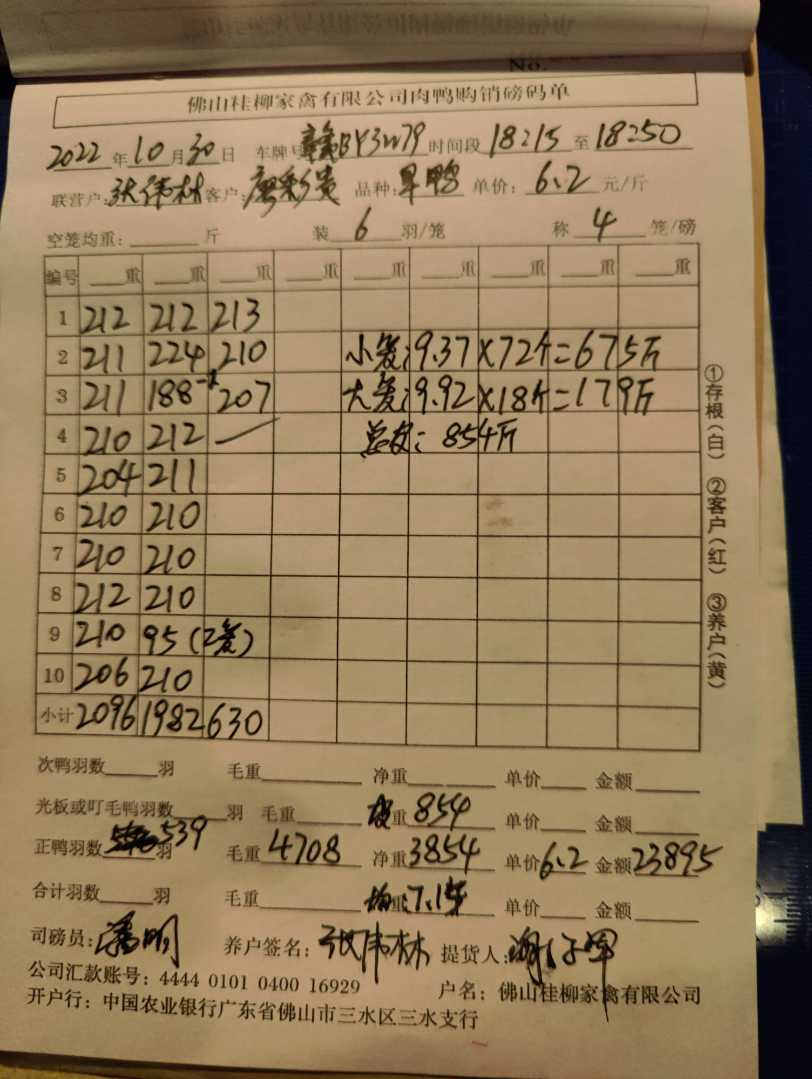 No.
佛山桂柳家禽有限公司肉鸭购销磅码单
2022年10月30日 车牌号赣BY3W79时间段18:15至18:50
联营户:张伟林客户:廖彩贵 品种:旱鸭 单价:6.2元/斤
空笼均重:斤 装6羽/笼 称4笼/磅
编号 重 重 重 重 重 重 重 重 重
1 212 212 213
2 211 224 210 小笼:9.37×72个=675斤
3 211 188-1 207 大笼:9.92×18个=179斤
4 210 212 854斤
5 204 211
6 210 210
7 210 210
8 212 210
9 210 95(2笼)
10 206 210
小计 2096 1982 630
次鸭羽数 羽 毛重 净重 单价 金额
光板或叮毛鸭羽数 羽 毛重 重854 单价 金额
正鸭羽数539羽 毛重4708 净重3854 单价6.2 金额23895
合计羽数 羽 毛重 均重7.15 单价 金额
司磅员:潘明 养户签名:张伟林 提货人:
公司汇款账号:4444 0101 0400 16929 户名:佛山桂柳家禽有限公司
开户行:中国农业银行广东省佛山市三水区三水支行
①存根(白) ②客户(红) ③养户(黄)